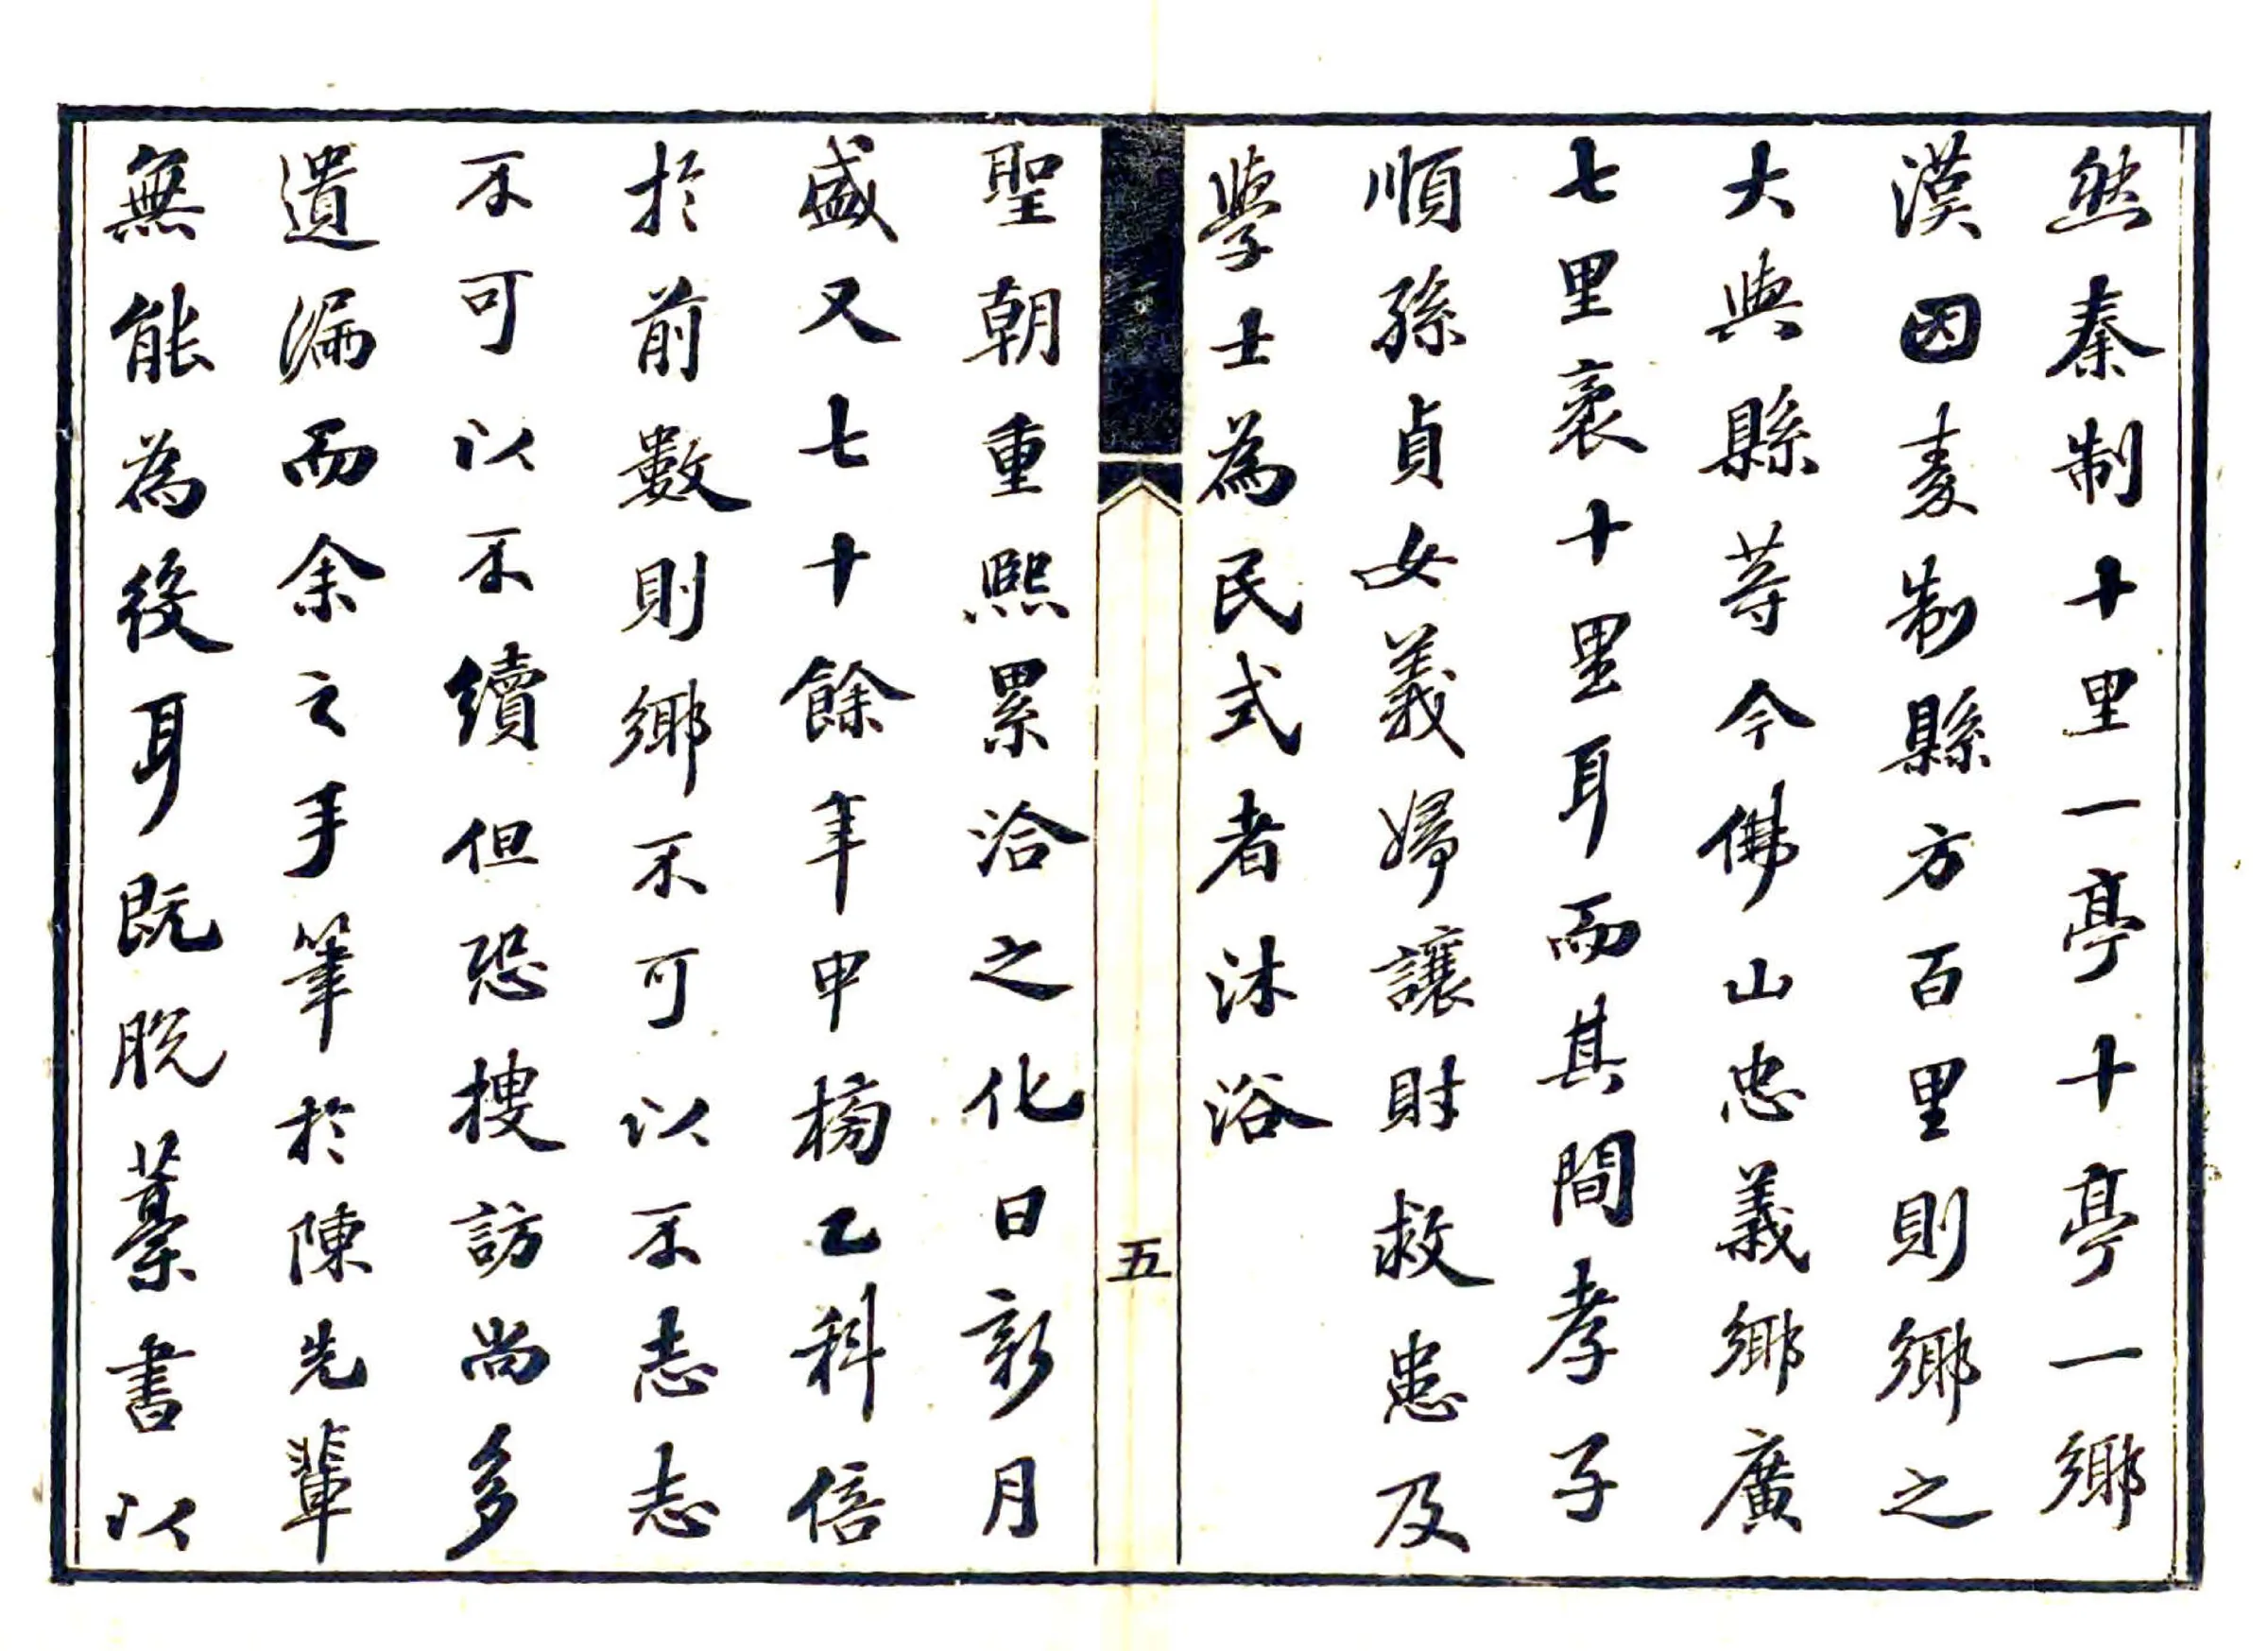 然秦制十里一亭十亭一鄉
漢因秦制縣方百里則鄉之
大與縣等今佛山忠義鄉廣
七里袤十里耳而其間孝子
順孫貞女義婦讓財救患及
學士為民式者沐浴
五
聖朝重熙累洽之化日新月
盛又七十餘年甲榜乙科倍
於前數則鄉不可以不志志
不可以不續但恐搜訪尚多
遺漏而余之手筆於陳先輩
無能為後耳既脫藁書以